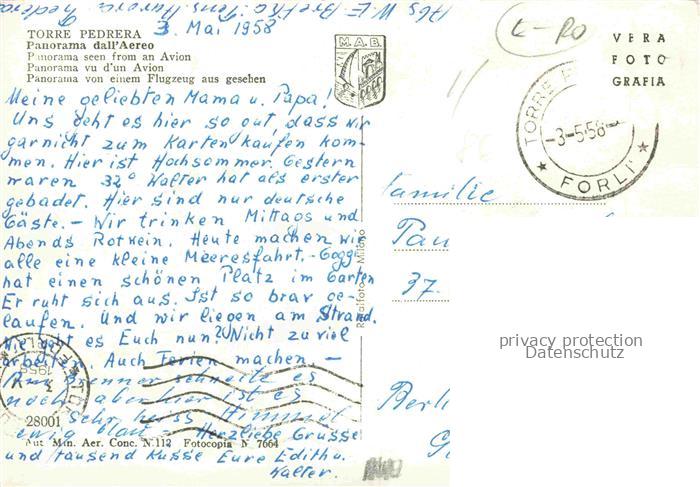 3. Mai 1958
TORRE PEDRERA
Panorama dall'Aereo
Panorama seen from an Avion
Panorama vu d'un Avion
Panorama von einem Flugzeug aus gesehen
M.A.B.
VERA
FOTO
GRAFIA
TORRE P
-3-5.58-
FORLI'
Meine geliebten Mama u. Papa!
Uns geht es hier so gut, dass wir
garnicht zum Karten kaufen kom-
men. Hier ist Hochsommer. Gestern
waren 32° Walter hat als erster
gebadet. Hier sind nur deutsche
Gäste. - Wir trinken Mittags und
Abends Rotwein. Heute machen wir
alle eine kleine Meeresfahrt. - Goggi
hat einen schönen Platz im Garten
Er ruht sich aus. Ist so brav ge-
laufen. Und wir liegen am Strand.
Wie geht es Euch nun? Nicht zu viel
arbeiten. Auch Ferien machen. -
Am Brenner schneite es
noch aber hier ist es
sehr heiss Himmel
ewig blau - Herzliche Grüsse
und tausend Küsse Eure Edith u.
Walter.
Familie
37.
Berli
privacy protection
Datenschutz
Realfoto - Milano
28001
Aut. Min. Aer. Conc. N. 112 Fotocopia N 7664